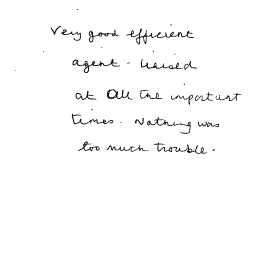 Very good efficient
agent - liaised
at all the important
times. Nothing was
too much trouble.